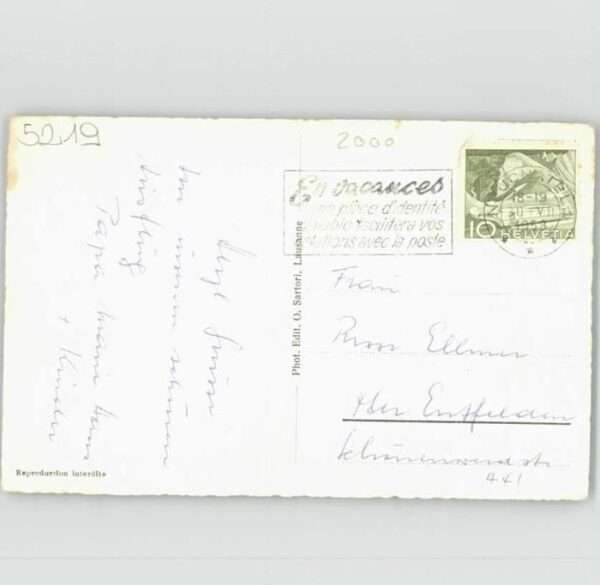 5219
2000
En vacances
une pièce d'identité
valable facilitera vos
relations avec la poste
10 HELVETIA
Herzl. Grüsse
von unserem schönen
Ausflug
Papa Mami Hans
+ Kinder
Phot. Edit. O. Sartori, Lausanne
Frau
Rosa Ellmer
Ober Entfelden
Schönenwerdstr.
441
Reproduction interdite